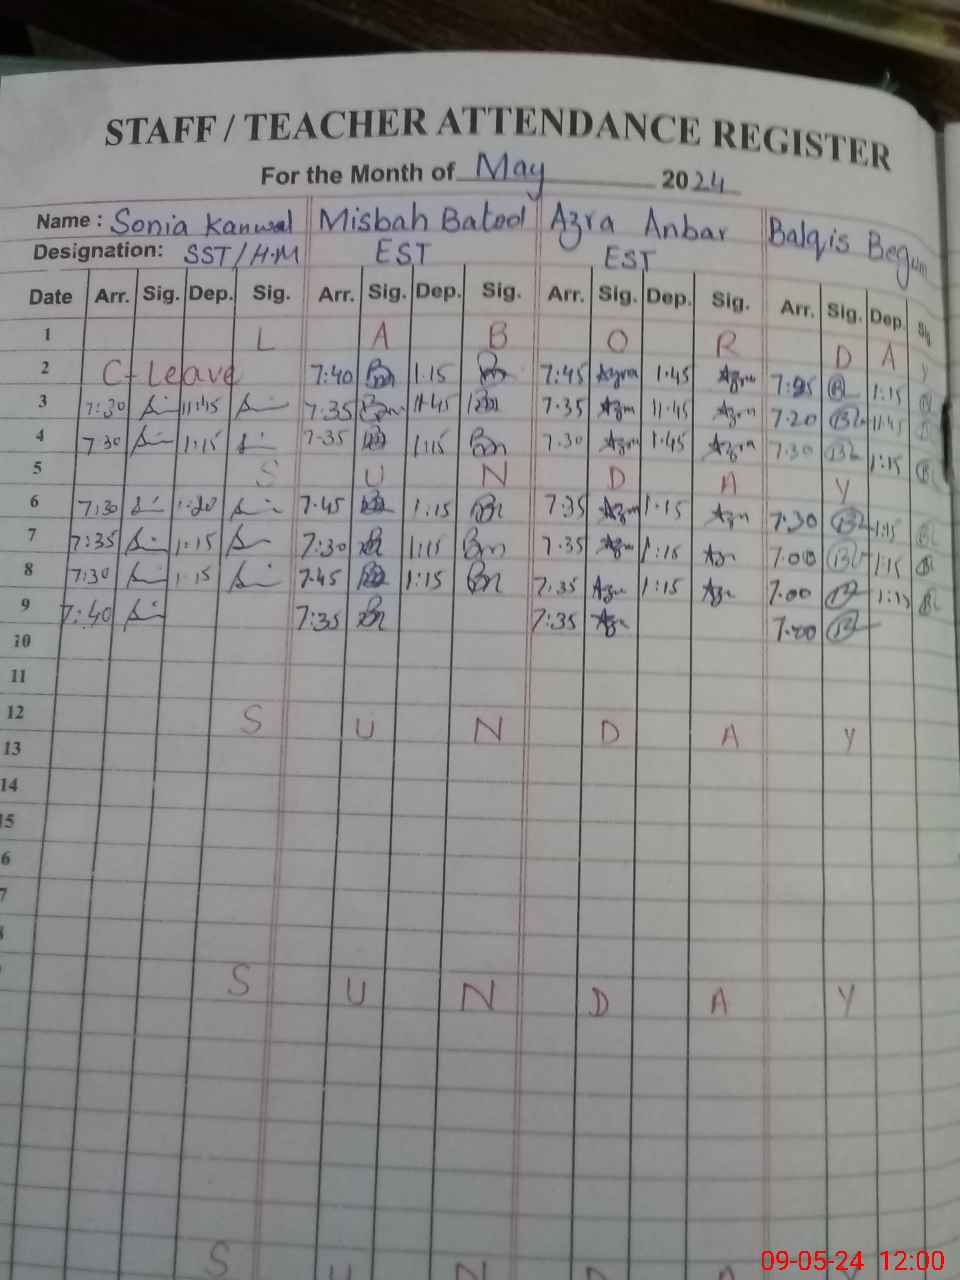 STAFF / TEACHER ATTENDANCE REGISTER
For the Month of May 2024
Name : Sonia Kanwal Misbah Batool Azra Anbar Balqis Begum
Designation: SST/H.M EST EST
Date Arr. Sig. Dep. Sig. Arr. Sig. Dep. Sig. Arr. Sig. Dep. Sig. Arr. Sig. Dep. Sig
1 L A B O R D A Y
2 C-Leave 7:40 1:15 7:45 Azra 1.45 Azra 1:15
3 7:30 11:45 7:35 11:45 7.35 Azra 11.45 Azra 7.20 11:45
4 7.30 1:15 7-35 1:15 7.30 Azra 1.45 Azra 7.30 1:15
5 S U N D A Y
6 7:30 7.45 1:15 7:35 Azra 1.15 Azra 7.30 1:15
7 7:35 1:15 7:30 1:15 7.35 1:15 7.00 1:15
8 7:30 1:15 7.45 1:15 7.35 1:15 7.00
9 7:40 7:35 7:35
10
11
12 S U N D A Y
13
14
15
6
7
S U N D A Y
S U N D A Y
09-05-24 12:00